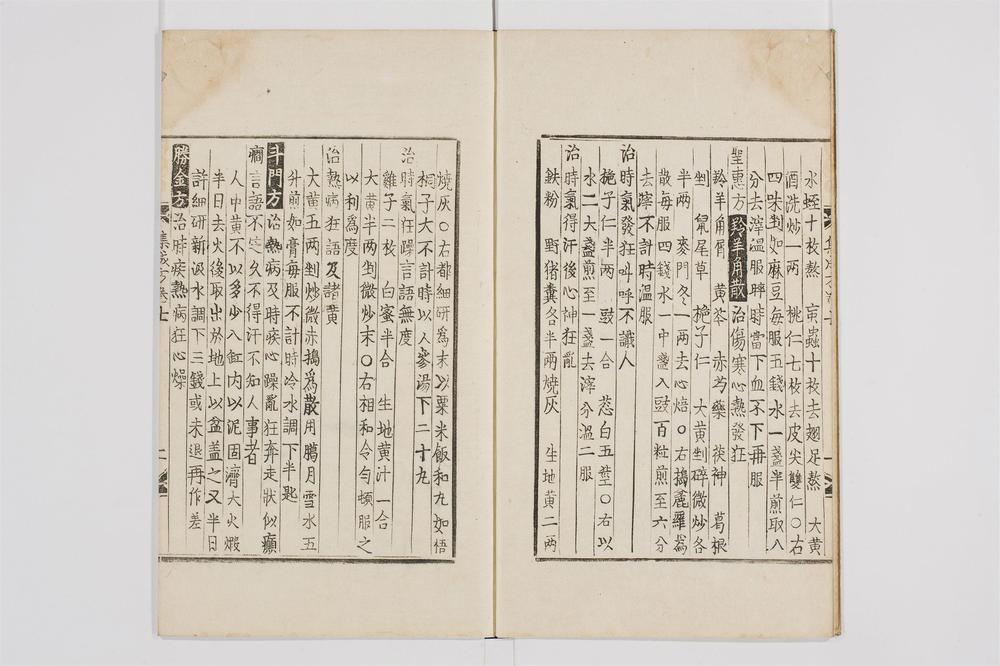 水蛭十枚熬 䖟蟲十枚去翅足熬 大黃
酒洗炒一兩 桃仁七枚去皮尖雙仁〇右
四味剉如麻豆每服五錢水一盞半煎取八
分去滓溫服晬時當下血不下再服
聖惠方 羚羊角散 治傷寒心熱發狂
羚羊角屑 黃芩 赤芍藥 茯神 葛根
剉 鼠尾草 梔子仁 大黃剉碎微炒各
半兩 麥門冬一兩去心焙〇右搗麄羅爲
散每服四錢水一中盞入豉百粒煎至六分
去滓不計時溫服
治時氣發狂叫呼不識人
梔子仁半兩 豉一合 葱白五莖〇右以
水二大盞煎至一盞去滓分溫二服
治時氣得汗後心神狂亂
鉄粉 野猪糞各半兩燒灰 生地黃二兩
燒灰〇右都細研爲末以粟米飯和丸如梧
桐子大不計時以人參湯下二十丸
治時氣狂躁言語無度
雞子二枚 白蜜半合 生地黃汁一合
大黃半兩剉微炒末〇右相和令勻頓服之
以利爲度
治熱病狂語及諸黃
大黃五兩剉炒微赤搗爲散用臘月雪水五
升煎如膏每服不計時冷水調下半匙
斗門方 治熱病及時疾心躁亂狂奔走狀似癲
癎言語不定久不得汗不知人事者
人中黃不以多少入缸內以泥固濟大火煅
半日去火後取出於地上以盆盖之又半日
許細研新汲水調下三錢或未退再作差
勝金方 治時疾熱病狂心燥